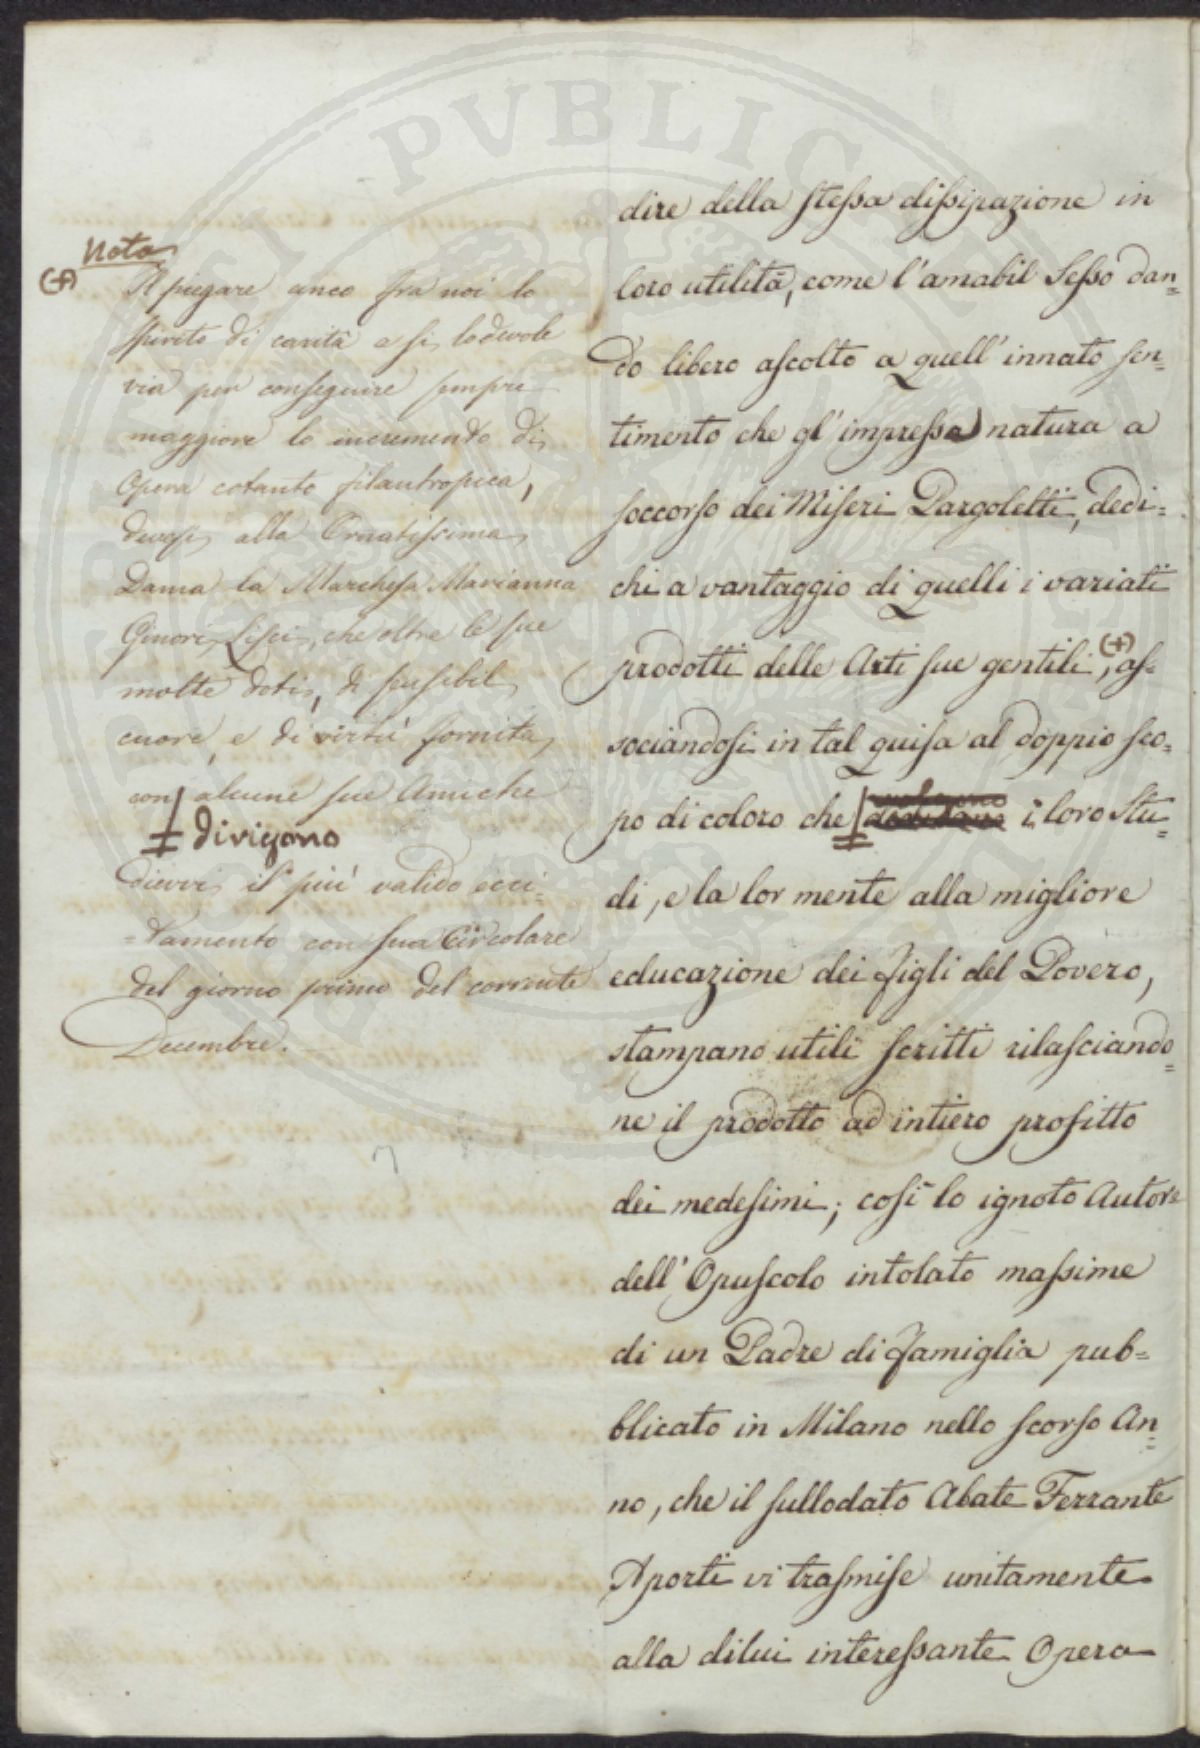 Nota
(+) Il piegare anco fra noi lo
spirito di carità a si lodevole
via per conseguire sempre
maggiore lo incremento di
Opera cotanto filantropica,
devesi alla Ornatissima
Dama la Marchesa Marianna
Ginori Lisci, che oltre le sue
molte doti, di sensibil
cuore, e di virtù fornita
con alcune sue Amiche
‡ dirigono
diervi il più valido ecci-
-tamento con sua Circolare
del giorno primo del corrente
Decembre.
dire della stessa dissipazione in
loro utilità, come l'amabil Sesso dan=
do libero ascolto a quell'innato sen=
timento che gl'impressa natura a
soccorso dei Miseri Pargoletti, dedi=
chi a vantaggio di quelli i variati
prodotti delle Arti sue gentili, (+) as=
sociandosi in tal guisa al doppio sco=
po di coloro che ‡ i loro Stu=
di, e la lor mente alla migliore
educazione dei figli del Povero,
stampano utili scritti rilasciando=
ne il prodotto ad intiero profitto
dei medesimi; così lo ignoto Autore
dell'Opuscolo intolato massime
di un Padre di famiglia pub=
blicato in Milano nello scorso An=
no, che il sullodato Abate Ferrante
Aporti vi trasmise unitamente
alla dilui interessante Opera